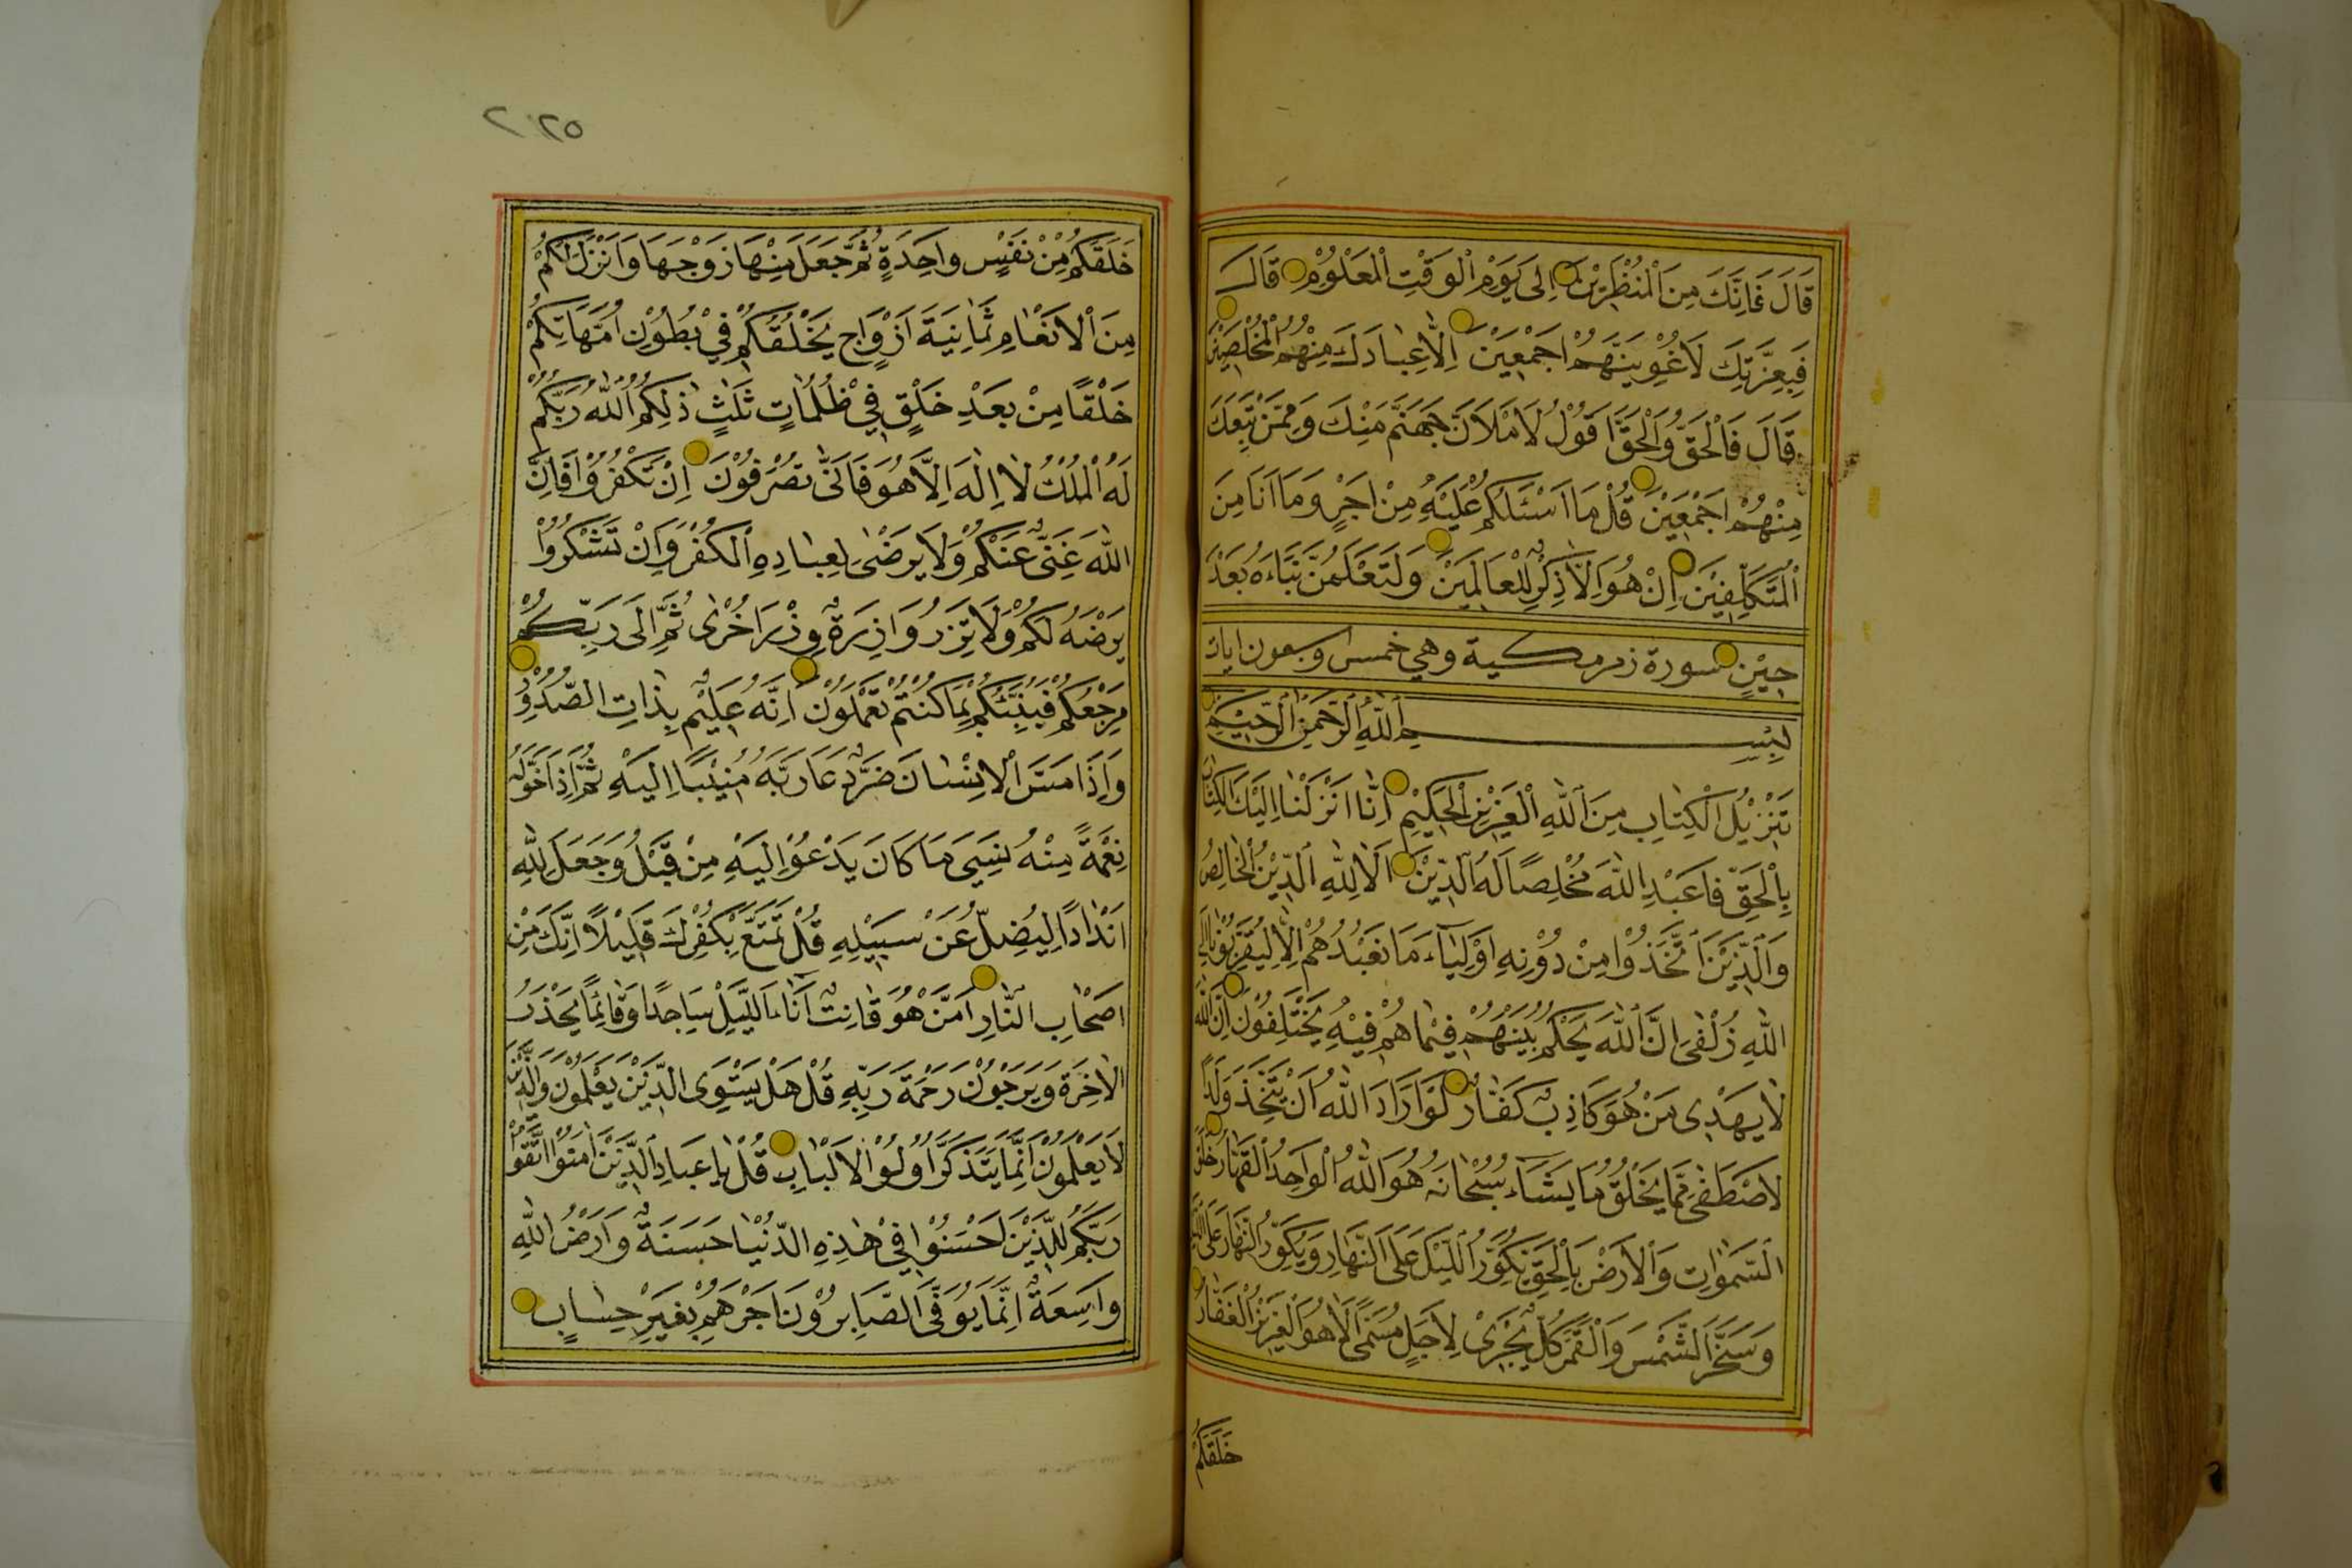 قَالَ فَاِنَّكَ مِنَ الْمُنْظَرِيْنَ اِلٰى يَوْمِ الْوَقْتِ الْمَعْلُوْمِ قَالَ
فَبِعِزَّتِكَ لَاُغْوِيَنَّهُمْ اَجْمَعِيْنَ اِلَّا عِبَادَكَ مِنْهُمُ الْمُخْلَصِيْنَ
قَالَ فَالْحَقُّ وَالْحَقَّ اَقُوْلُ لَاَمْلَاَنَّ جَهَنَّمَ مِنْكَ وَمِمَّنْ تَبِعَكَ
مِنْهُمْ اَجْمَعِيْنَ قُلْ مَا اَسْئَلُكُمْ عَلَيْهِ مِنْ اَجْرٍ وَمَا اَنَا مِنَ
الْمُتَكَلِّفِيْنَ اِنْ هُوَ اِلَّا ذِكْرٌ لِلْعَالَمِيْنَ وَلَتَعْلَمُنَّ نَبَاَءَهُ بَعْدَ
حِيْنٍ سورة زمر مكية وهي خمس وسبعون ايات
بِسْمِ اللّٰهِ الرَّحْمٰنِ الرَّحِيْمِ
تَنْزِيْلُ الْكِتَابِ مِنَ اللّٰهِ الْعَزِيْزِ الْحَكِيْمِ اِنَّا اَنْزَلْنَا اِلَيْكَ الْكِتَابَ
بِالْحَقِّ فَاعْبُدِ اللّٰهَ مُخْلِصًا لَهُ الدِّيْنَ اَلَا لِلّٰهِ الدِّيْنُ الْخَالِصُ
وَالَّذِيْنَ اتَّخَذُوْا مِنْ دُوْنِهِ اَوْلِيَاۤءَ مَا نَعْبُدُهُمْ اِلَّا لِيُقَرِّبُوْنَا اِلَى
اللّٰهِ زُلْفٰى اِنَّ اللّٰهَ يَحْكُمُ بَيْنَهُمْ فِيْمَا هُمْ فِيْهِ يَخْتَلِفُوْنَ اِنَّ اللّٰهَ
لَا يَهْدِى مَنْ هُوَ كَاذِبٌ كَفَّارٌ لَوْ اَرَادَ اللّٰهُ اَنْ يَتَّخِذَ وَلَدًا
لَاصْطَفٰى مِمَّا يَخْلُقُ مَا يَشَاۤءُ سُبْحَانَهُ هُوَ اللّٰهُ الْوَاحِدُ الْقَهَّارُ خَلَقَ
السَّمٰوَاتِ وَالْاَرْضَ بِالْحَقِّ يُكَوِّرُ اللَّيْلَ عَلَى النَّهَارِ وَيُكَوِّرُ النَّهَارَ عَلَى اللَّيْلِ
وَسَخَّرَ الشَّمْسَ وَالْقَمَرَ كُلٌّ يَجْرِىْ لِاَجَلٍ مُسَمًّى اَلَا هُوَ الْعَزِيْزُ الْغَفَّارُ
خَلَقَكُمْ
خَلَقَكُمْ مِنْ نَفْسٍ وَاحِدَةٍ ثُمَّ جَعَلَ مِنْهَا زَوْجَهَا وَاَنْزَلَ لَكُمْ
مِنَ الْاَنْعَامِ ثَمَانِيَةَ اَزْوَاجٍ يَخْلُقُكُمْ فِيْ بُطُوْنِ اُمَّهَاتِكُمْ
خَلْقًا مِنْ بَعْدِ خَلْقٍ فِيْ ظُلُمَاتٍ ثَلٰثٍ ذٰلِكُمُ اللّٰهُ رَبُّكُمْ
لَهُ الْمُلْكُ لَا اِلٰهَ اِلَّا هُوَ فَاَنّٰى تُصْرَفُوْنَ اِنْ تَكْفُرُوْا فَاِنَّ
اللّٰهَ غَنِىٌّ عَنْكُمْ وَلَا يَرْضٰى لِعِبَادِهِ الْكُفْرَ وَاِنْ تَشْكُرُوْا
يَرْضَهُ لَكُمْ وَلَا تَزِرُ وَازِرَةٌ وِزْرَ اُخْرٰى ثُمَّ اِلَى رَبِّكُمْ
مَرْجِعُكُمْ فَيُنَبِّئُكُمْ بِمَا كُنْتُمْ تَعْمَلُوْنَ اِنَّهُ عَلِيْمٌ بِذَاتِ الصُّدُوْرِ
وَاِذَا مَسَّ الْاِنْسَانَ ضُرٌّ دَعَا رَبَّهُ مُنِيْبًا اِلَيْهِ ثُمَّ اِذَا خَوَّلَهُ
نِعْمَةً مِنْهُ نَسِيَ مَا كَانَ يَدْعُوْا اِلَيْهِ مِنْ قَبْلُ وَجَعَلَ لِلّٰهِ
اَنْدَادًا لِيُضِلَّ عَنْ سَبِيْلِهِ قُلْ تَمَتَّعْ بِكُفْرِكَ قَلِيْلًا اِنَّكَ مِنْ
اَصْحَابِ النَّارِ اَمَّنْ هُوَ قَانِتٌ اٰنَاءَ اللَّيْلِ سَاجِدًا وَقَائِمًا يَحْذَرُ
الْاٰخِرَةَ وَيَرْجُوْنَ رَحْمَةَ رَبِّهِ قُلْ هَلْ يَسْتَوِى الَّذِيْنَ يَعْلَمُوْنَ وَالَّذِيْنَ
لَا يَعْلَمُوْنَ اِنَّمَا يَتَذَكَّرُ اُولُوْا الْاَلْبَابِ قُلْ يَا عِبَادِ الَّذِيْنَ اٰمَنُوْا اتَّقُوْا
رَبَّكُمْ لِلَّذِيْنَ اَحْسَنُوْا فِيْ هٰذِهِ الدُّنْيَا حَسَنَةٌ وَاَرْضُ اللّٰهِ
وَاسِعَةٌ اِنَّمَا يُوَفَّى الصَّابِرُوْنَ اَجْرَهُمْ بِغَيْرِ حِسَابٍ